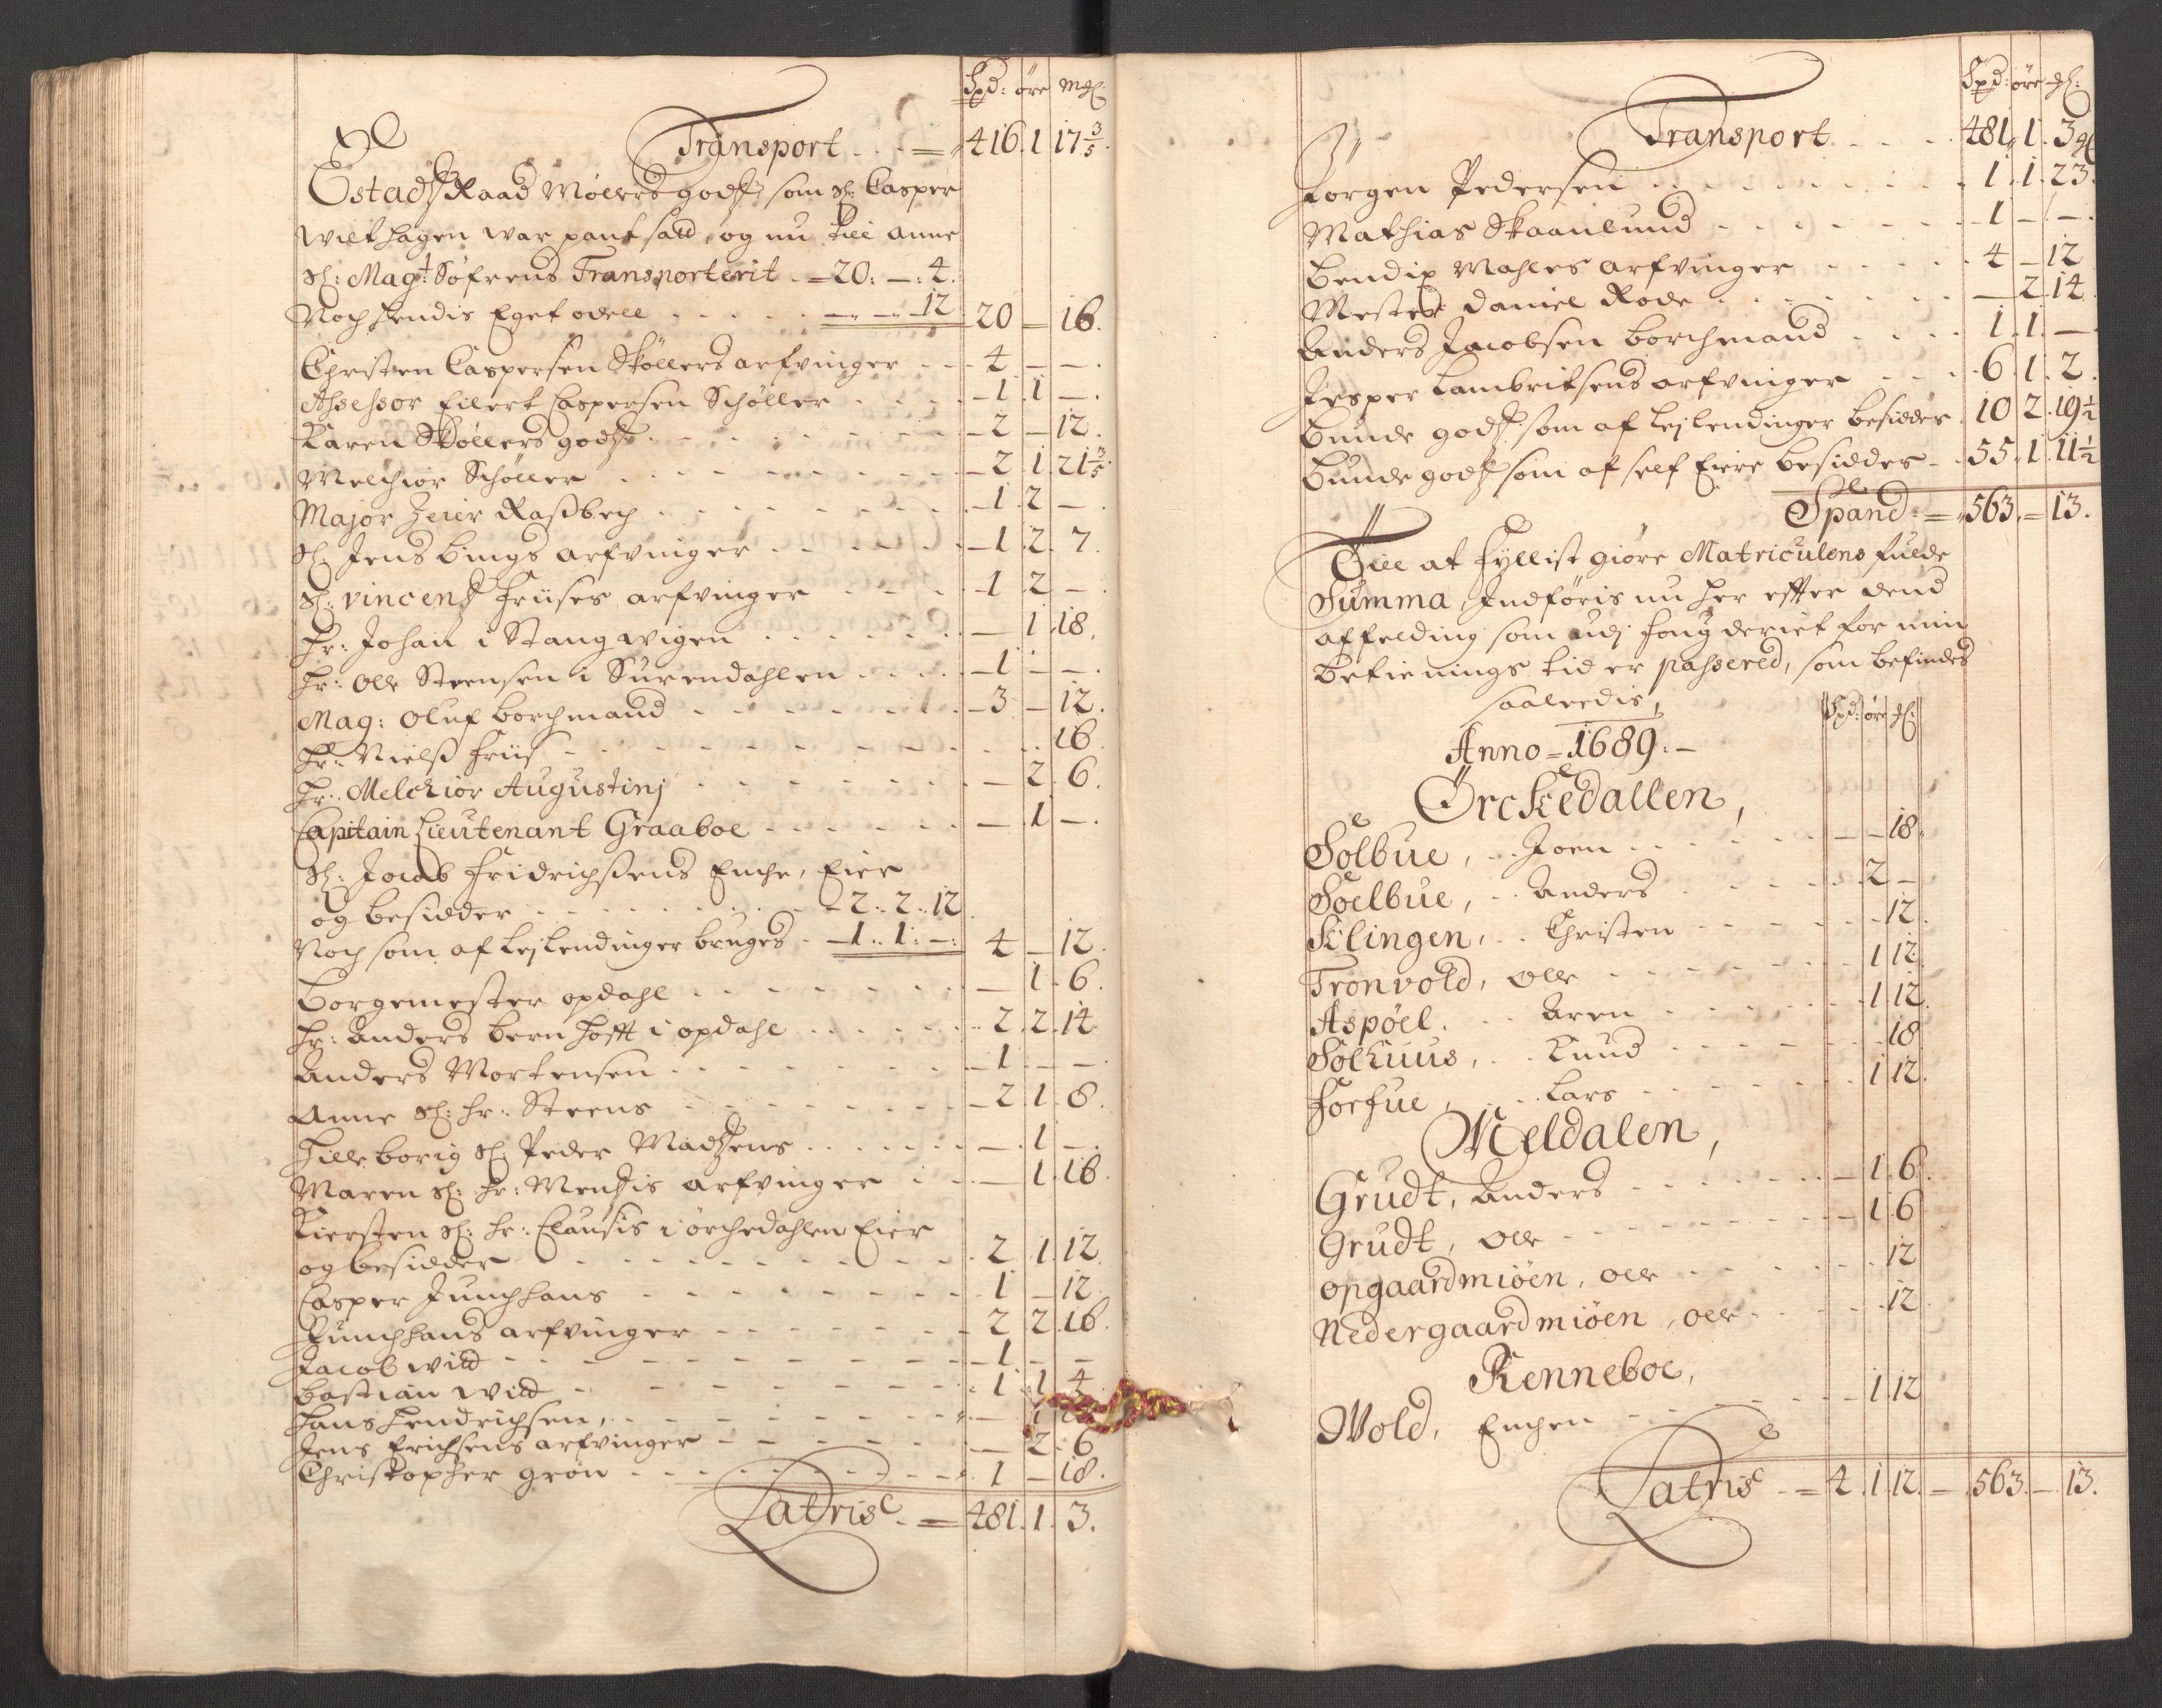 Spd: öre mſ:
Transport . . = 416. 1 17 3/5.
Estadtz Raad Møllers godtz, som Sl: Casper
Wilthagen war pantsatt, og nu till Anne
Sl: Magt: Søfrens Transporterit . =20: — : 4.
Noch hendis Eget odell . . . . . —. —. 12 20 — 16.
Christen Caspersen Skøllers arfvinger . . 4 — —.
Assessor Eilert Caspersen Schøller . . . —1 1 —.
Karen Skøllers godtz . . . . . . —2 — 12.
Melchior Schøller . . . . . . —2 1 21 3/5.
Major Zeier Rasbech . . . . . . —1. 2 —.
Sl. Jens Bings arfvinger . . . . . —1. 2. 7.
Sl: Vincentz Friises arfvinger . . . —1 2 —.
Hr: Johan i Stangwigen . . . . . — 1 18.
Hr: Olle Steensen i Surendahlen . . . —1 — —.
Mag: Oluf Borchmand . . . . . —3 — 12.
Hr: Nielß Friis . . . . . . 16.
Hr: Melchior Augustinj . . . . . — 2. 6.
Capitain Lieutenant Graaboe . . . . — 1 —.
Sl: Jocab Fridrichsens Enche, Eier
og besidder . . . . . . —2. 2. 12
Noch som af Lejlendinger bruges . —1. 1. —: 4 — 12.
Borgemester opdahl . . . . . — 1. 6.
Hr: Anders Bernhofft i opdahl . . . . 2. 2. 14.
Anders Mortensen . . . . . —1 — —
Anne Sl: Hr: Steens . . . . . —2 1 8.
Hilleborig Sl. Peder Madtzens . . . . — 1 —.
Maren Sl: Hr: Mentzis arfvinger . . . — 1. 16.
Kiersten Sl: Hr: Clausis i örchedahlen Eier
og besidder . . . . . . . 2 1. 12
Casper Junghans . . . . . . 1 — 12
Junghans arfvinger . . . . . 2 2. 16.
Jacob Wild . . . . . . —1 — —
Bastian Wild . . . . . . 1 1 4
Hans Hendrichsen, . . . . . . — 1
Jens Erichsens arfvinger . . . . . — 2. 6
Christopher Grøn . . . . . . 1 — 18.
Latris. = 481. 1. 3.
Spd: öre ſ:
Transport . . . 481. 1. 3
Jörgen Pedersen . . . . . 1. 1. 23.
Mathias Skaanlund . . . . . 1 — —.
Bendix Mahles arfvinger . . . . 4 — 12
Mester Daniel Rode . . . . . — 2. 14
Anders Jacobsen Borchmand . . . . 1. 1. —
Jesper Lambritsens arfvinger . . . 6. 1. 2.
Bunde godtz som af Lejlendinger besidder 10 2 19 1/2
Bunde godtz som af self Eiere besiddes . 55. 1. 11 1/2
Spand = 563. = 13.
Till at fyllist giøre Matriculens fulde
Summa, Indføris nu her effter dend
affelding som udj fougderiet for min
Betienings tid er passered, som befindes
saaledis,
Spd: öre ſ:
Anno = 1689. —
Örckedallen,
Solbue, . . Joen . . . . . — — 18.
Soelbue, . . Anders . . . . . 2 —
Klingen, . . Christen . . . . . 12.
Tronvold, Olle . . . . . 1 12.
Aspöel. . . Aren . . . . . 1 12.
Solhuus, . . Knud . . . . . 18
Forfue, . . Lars . . . . . 1 12.
Meldalen,
Grudt, Anders . . . . . — 1. 6.
Grudt, Olle . . . . . — 1. 6
Opgaardmiöen, Olle . . . . . 12
Nedergaardmiöen, Olle . . . . . 12
Renneboe,
Wold, Enchen . . . . . — 1 12
Latris . = 4. 1 12. — 563. — 13.